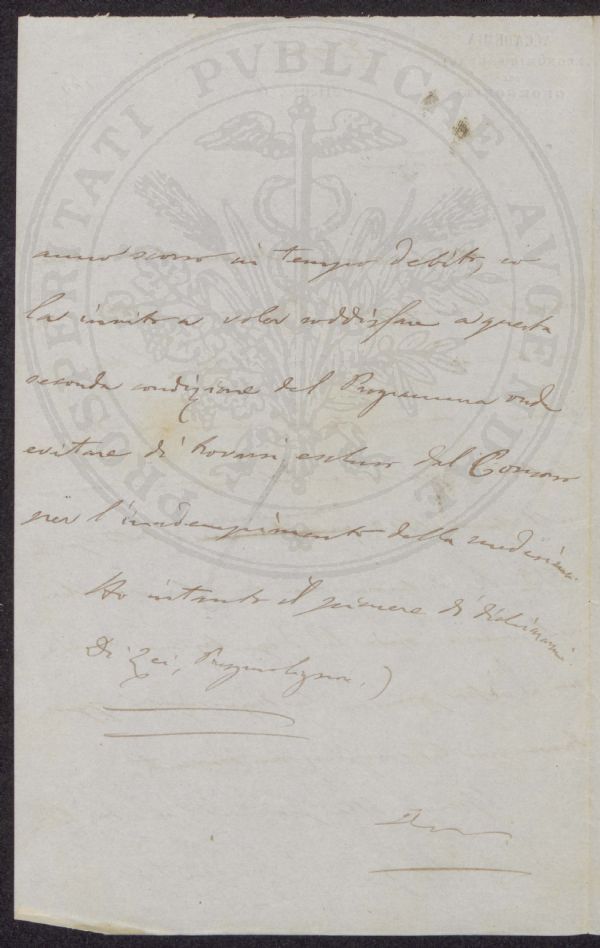 anno scorso in tempo debito, io
la invito a voler soddisfare a questa
seconda condizione del Programma onde
evitare di trovarsi escluso dal Concorso
per l'inadempimento della medesima.
Ho intanto il piacere di dichiararmi
Di Lei,
PROSPERITATI PVBLICAE AVGENDAE
ACCADEMIA